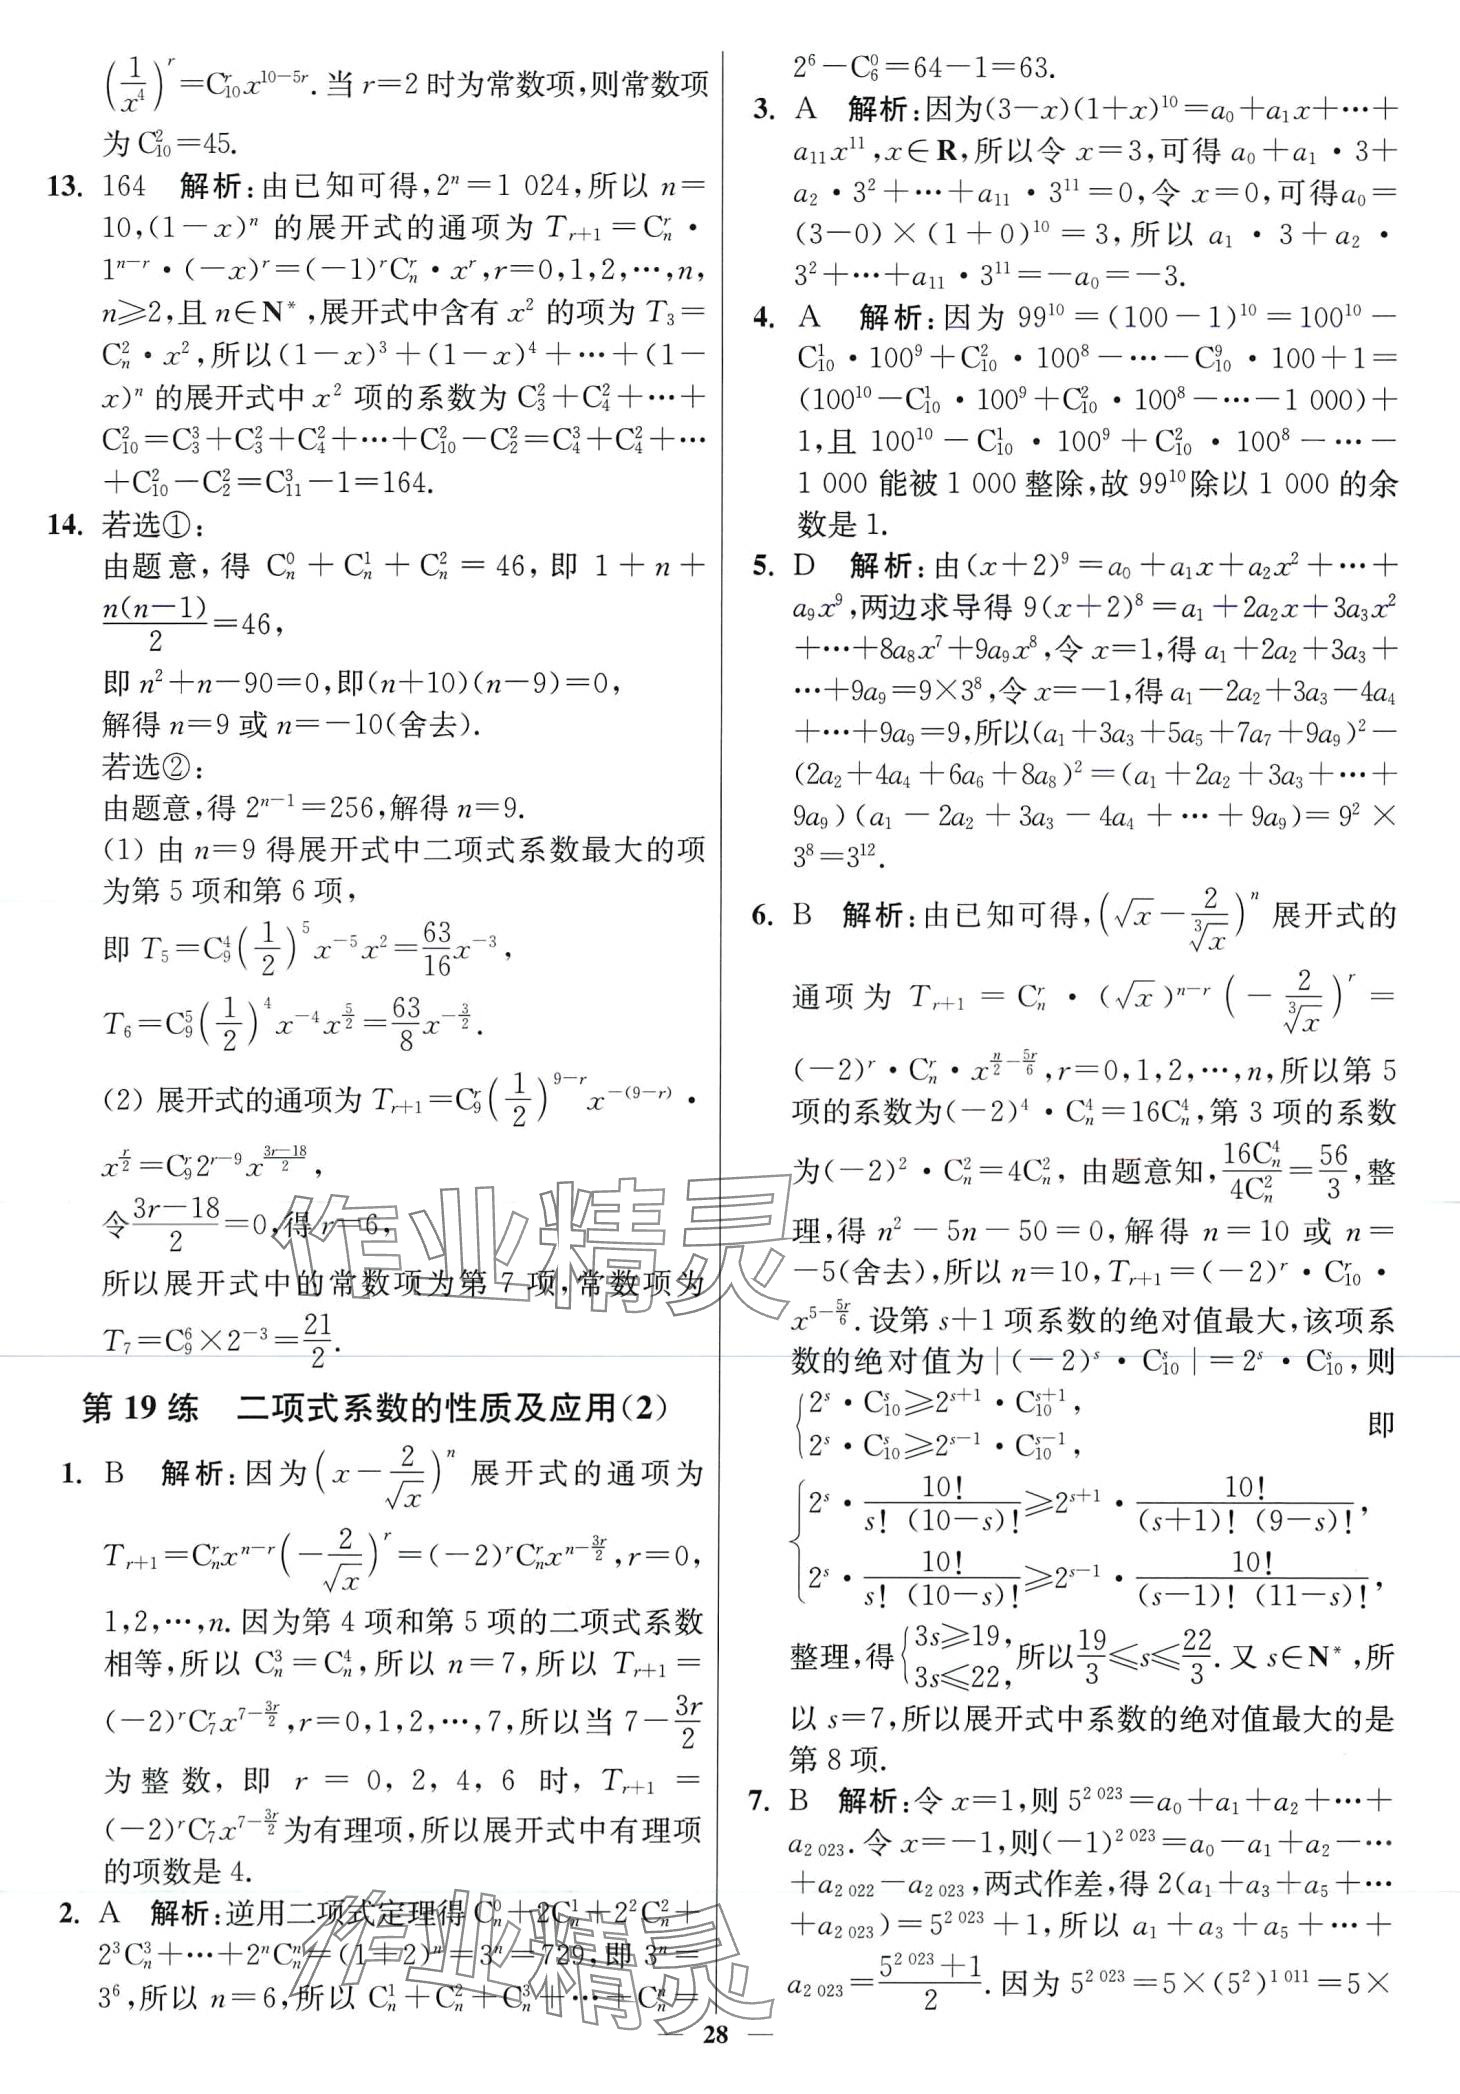 (1/x⁴)^r=C₁₀^r x^(10−5r).当 r=2 时为常数项,则常数项
为 C₁₀²=45.
13. 164 解析:由已知可得,2ⁿ=1 024,所以 n=
10,(1−x)ⁿ 的展开式的通项为 T_(r+1)=C_n^r·
1^(n−r)·(−x)^r=(−1)^r C_n^r·x^r,r=0,1,2,⋯,n,
n≥2,且 n∈N*,展开式中含有 x² 的项为 T₃=
C_n²·x²,所以(1−x)³+(1−x)⁴+⋯+(1−
x)ⁿ 的展开式中 x² 项的系数为 C₃²+C₄²+⋯+
C₁₀²=C₃³+C₃²+C₄²+⋯+C₁₀²−C₂²=C₄³+C₄²+⋯
+C₁₀²−C₂²=C₁₁³−1=164.
14. 若选①:
由题意,得 C_n⁰+C_n¹+C_n²=46,即 1+n+
n(n−1)/2=46,
即 n²+n−90=0,即(n+10)(n−9)=0,
解得 n=9 或 n=−10(舍去).
若选②:
由题意,得 2^(n−1)=256,解得 n=9.
(1) 由 n=9 得展开式中二项式系数最大的项
为第 5 项和第 6 项,
即 T₅=C₉⁴(1/2)⁵x⁻⁵x²=63/16 x⁻³,
T₆=C₉⁵(1/2)⁴x⁻⁴x^(5/2)=63/8 x^(−3/2).
(2) 展开式的通项为 T_(r+1)=C₉^r(1/2)^(9−r) x^(−(9−r))·
x^(r/2)=C₉^r 2^(r−9) x^((3r−18)/2),
令(3r−18)/2=0,得 r=6,
所以展开式中的常数项为第 7 项,常数项为
T₇=C₉⁶×2⁻³=21/2.
第 19 练 二项式系数的性质及应用(2)
1. B 解析:因为(x−2/√x)ⁿ 展开式的通项为
T_(r+1)=C_n^r x^(n−r)(−2/√x)^r=(−2)^r C_n^r x^(n−3r/2),r=0,
1,2,⋯,n.因为第 4 项和第 5 项的二项式系数
相等,所以 C_n³=C_n⁴,所以 n=7,所以 T_(r+1)=
(−2)^r C₇^r x^(7−3r/2),r=0,1,2,⋯,7,所以当 7−3r/2
为整数,即 r=0,2,4,6 时,T_(r+1)=
(−2)^r C₇^r x^(7−3r/2)为有理项,所以展开式中有理项
的项数是 4.
2. A 解析:逆用二项式定理得 C_n⁰+2C_n¹+2²C_n²+
2³C_n³+⋯+2ⁿC_nⁿ=(1+2)ⁿ=3ⁿ=729,即 3ⁿ=
3⁶,所以 n=6,所以 C_n¹+C_n²+C_n³+⋯+C_nⁿ=
2⁶−C₆⁰=64−1=63.
3. A 解析:因为(3−x)(1+x)¹⁰=a₀+a₁x+⋯+
a₁₁x¹¹,x∈R,所以令 x=3,可得 a₀+a₁·3+
a₂·3²+⋯+a₁₁·3¹¹=0,令 x=0,可得a₀=
(3−0)×(1+0)¹⁰=3,所以 a₁·3+a₂·
3²+⋯+a₁₁·3¹¹=−a₀=−3.
4. A 解析:因为 99¹⁰=(100−1)¹⁰=100¹⁰−
C₁₀¹·100⁹+C₁₀²·100⁸−⋯−C₁₀⁹·100+1=
(100¹⁰−C₁₀¹·100⁹+C₁₀²·100⁸−⋯−1 000)+
1,且 100¹⁰−C₁₀¹·100⁹+C₁₀²·100⁸−⋯−
1 000 能被 1 000 整除,故 99¹⁰除以 1 000 的余
数是 1.
5. D 解析:由(x+2)⁹=a₀+a₁x+a₂x²+⋯+
a₉x⁹,两边求导得 9(x+2)⁸=a₁+2a₂x+3a₃x²
+⋯+8a₈x⁷+9a₉x⁸,令 x=1,得 a₁+2a₂+3a₃+
⋯+9a₉=9×3⁸,令 x=−1,得 a₁−2a₂+3a₃−4a₄
+⋯+9a₉=9,所以(a₁+3a₃+5a₅+7a₇+9a₉)²−
(2a₂+4a₄+6a₆+8a₈)²=(a₁+2a₂+3a₃+⋯+
9a₉)(a₁−2a₂+3a₃−4a₄+⋯+9a₉)=9²×
3⁸=3¹².
6. B 解析:由已知可得,(√x−2/∛x)ⁿ 展开式的
通项为 T_(r+1)=C_n^r·(√x)^(n−r)(−2/∛x)^r=
(−2)^r·C_n^r·x^(n/2−5r/6),r=0,1,2,⋯,n,所以第 5
项的系数为(−2)⁴·C_n⁴=16C_n⁴,第 3 项的系数
为(−2)²·C_n²=4C_n²,由题意知,16C_n⁴/4C_n²=56/3,整
理,得 n²−5n−50=0,解得 n=10 或 n=
−5(舍去),所以 n=10,T_(r+1)=(−2)^r·C₁₀^r·
x^(5−5r/6).设第 s+1 项系数的绝对值最大,该项系
数的绝对值为|(−2)^s·C₁₀^s|=2^s·C₁₀^s,则
{2^s·C₁₀^s≥2^(s+1)·C₁₀^(s+1), 即
2^s·C₁₀^s≥2^(s−1)·C₁₀^(s−1),
{2^s·10!/(s!(10−s)!)≥2^(s+1)·10!/((s+1)!(9−s)!),
2^s·10!/(s!(10−s)!)≥2^(s−1)·10!/((s−1)!(11−s)!),
整理,得{3s≥19, 3s≤22,所以19/3≤s≤22/3.又 s∈N*,所
以 s=7,所以展开式中系数的绝对值最大的是
第 8 项.
7. B 解析:令 x=1,则 5^(2 023)=a₀+a₁+a₂+⋯+
a_(2 023).令 x=−1,则(−1)^(2 023)=a₀−a₁+a₂−⋯
+a_(2 022)−a_(2 023),两式作差,得 2(a₁+a₃+a₅+⋯
+a_(2 023))=5^(2 023)+1,所以 a₁+a₃+a₅+⋯+
a_(2 023)=(5^(2 023)+1)/2.因为 5^(2 023)=5×(5²)^(1 011)=5×
— 28 —
作业精灵
作业精灵